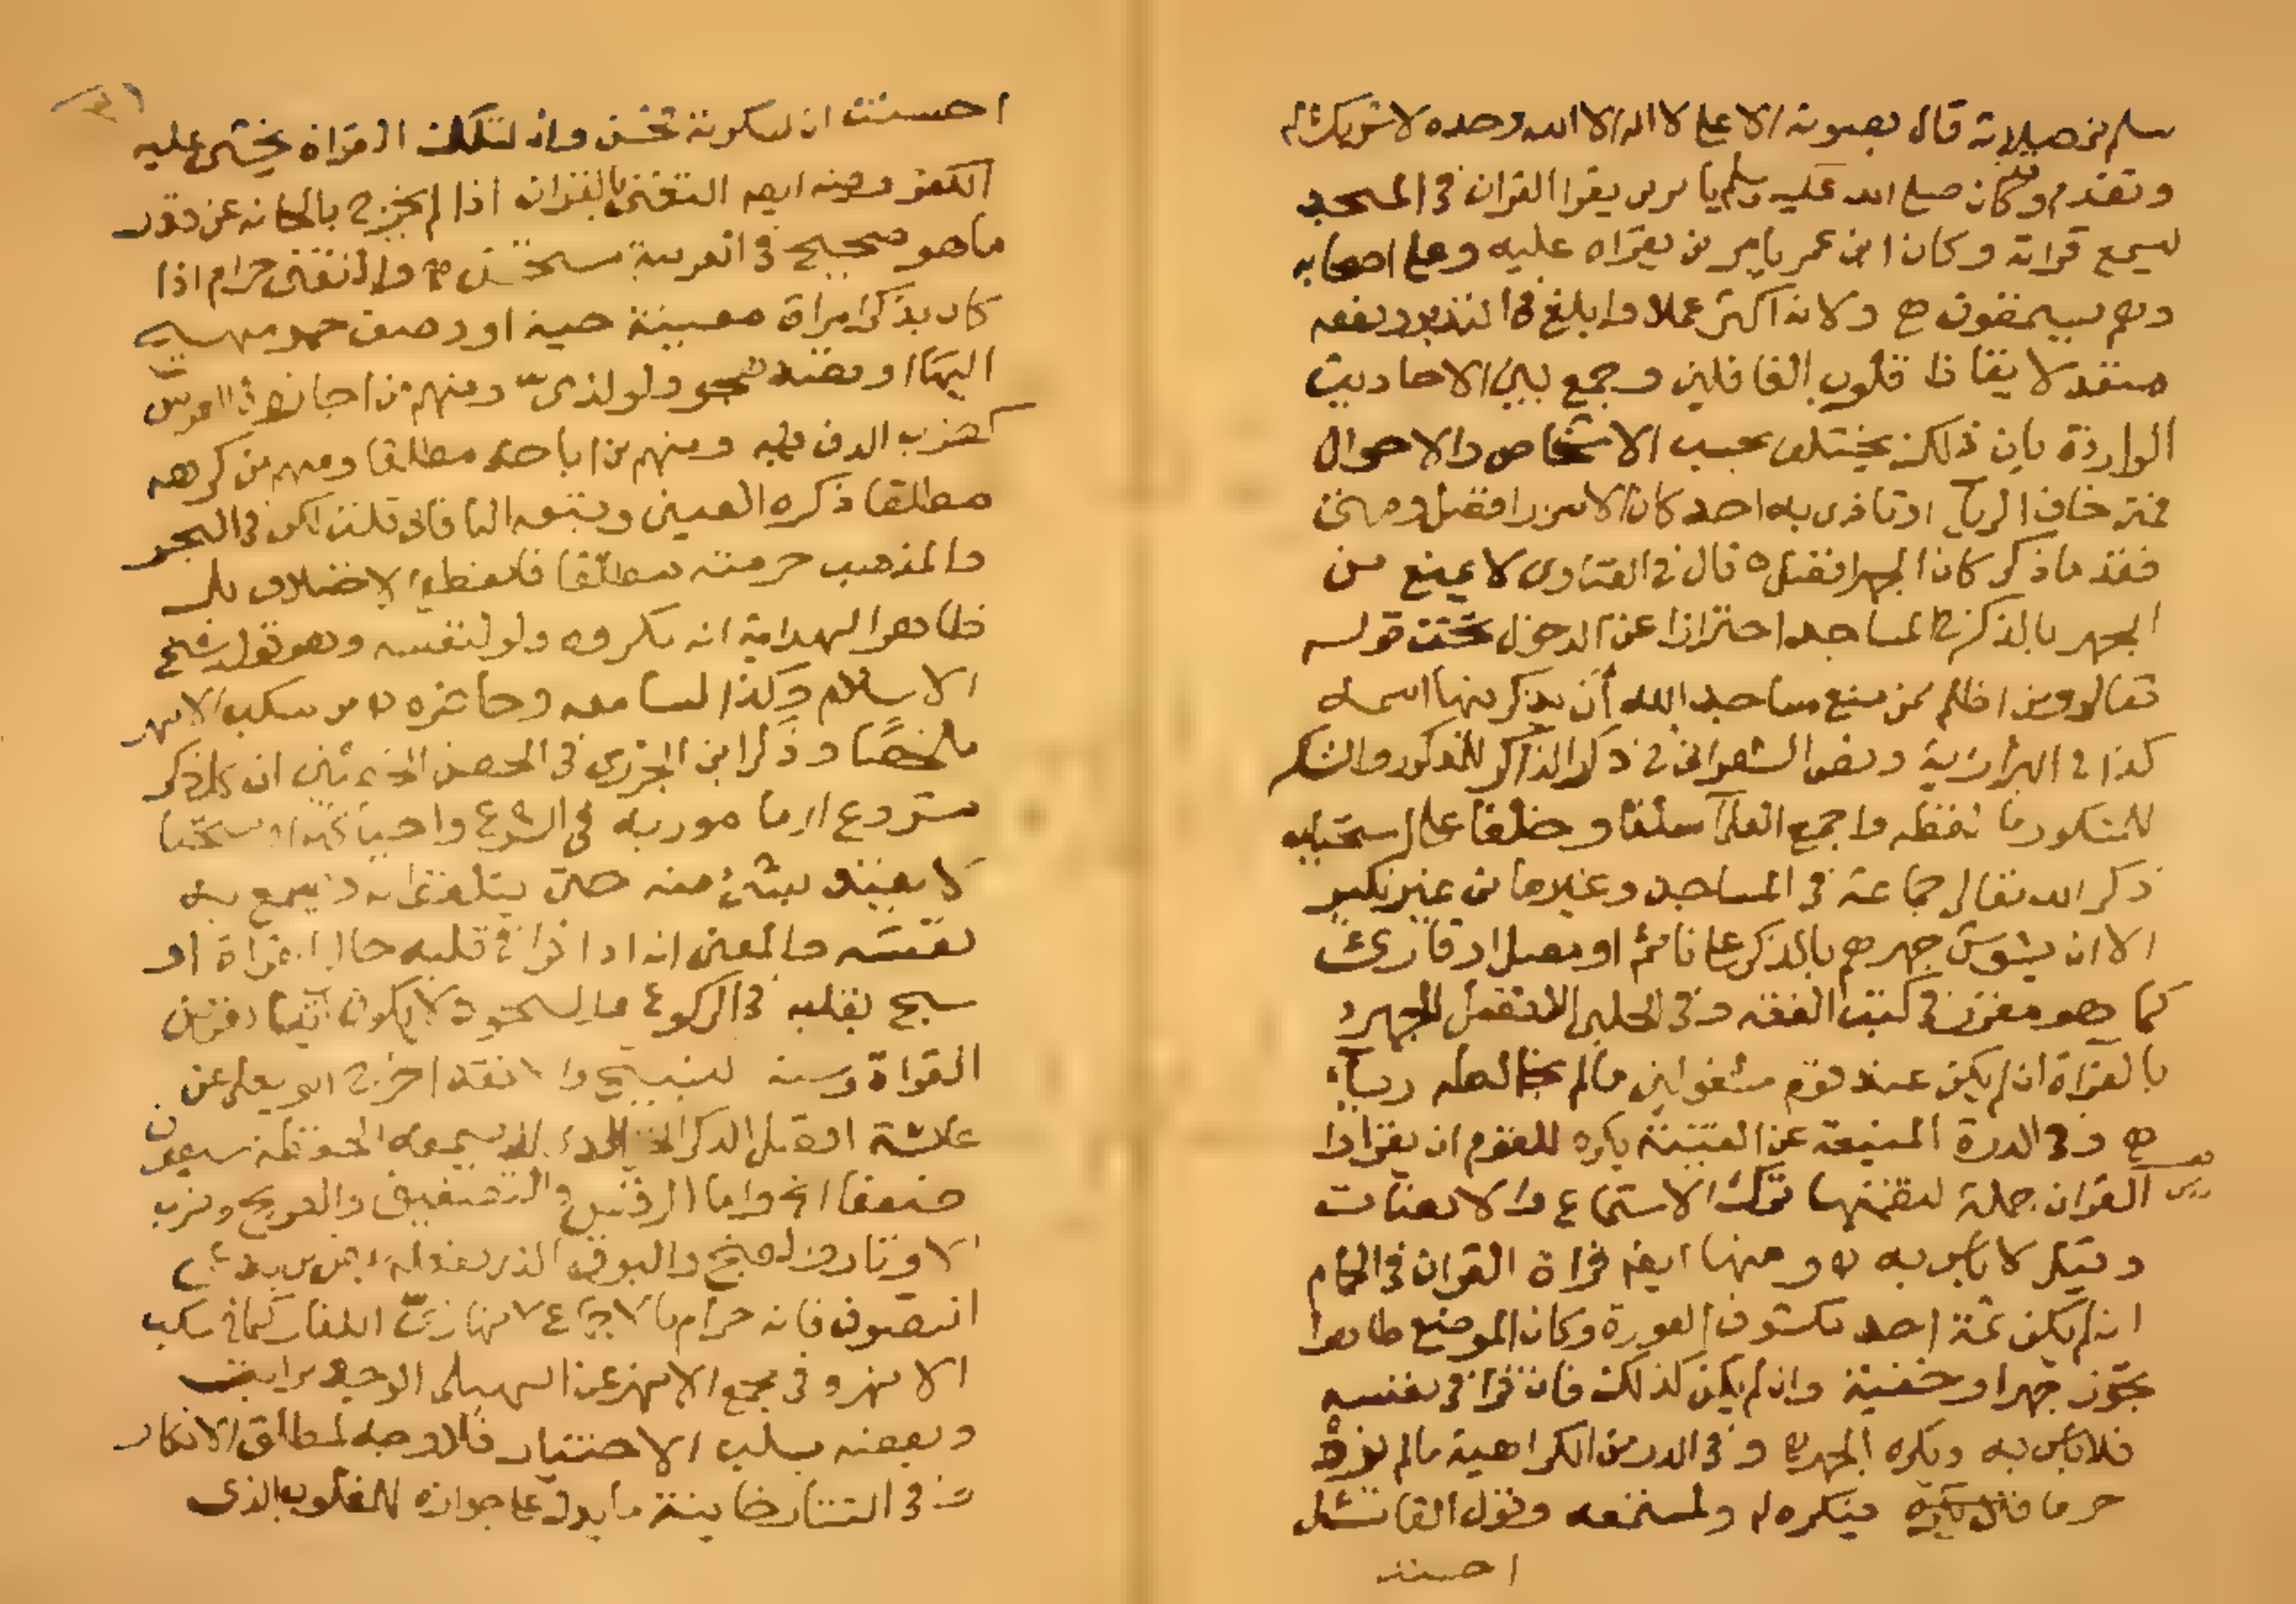 سلم من صلاته قال بصوته الاعلى لا اله الا الله وحده لا شريك له
وتقدم وقد كان صلى الله عليه وسلم يامر من يقرا القران في المسجد
ليسمع قراته وكان ابن عمر يامر من يقراه عليه وعلى اصحابه
وهم يستمعون ولانه اكثر عملا وابلغ في التدبر ونفعه
متعد لايقاظ قلوب الغافلين وجمع بين الاحاديث
الواردة بان ذلك يختلف بحسب الاشخاص والاحوال
فمتى خاف الريا او تاذى به احد كان الاسرار افضل ومتى
فقد ما ذكر كان الجهر افضل قال في الفتاوى لا يمنع من
الجهر بالذكر في المساجد احترازا عن الدخول تحت قوله
تعالى ومن اظلم ممن منع مساجد الله أن يذكر فيها اسمه
كذا في البزازية ونص الشعراني في ذكر الذاكر للمذكور والشاكر
للمشكور ما لفظه واجمع العلما سلفا وخلفا على استحباب
ذكر الله تعالى جماعة في المساجد وغيرها من غير نكير
الا ان يشوش جهرهم بالذكر على نائم او مصل او قارئ
كما هو مقرر في كتب الفقه وفي الحلبي الافضل الجهر
بالقراة ان لم يكن عند قوم مشغولين مالم يخالطه رياء
وفي الدرة المنيفة عن القنية يكره للقوم ان يقراوا
القران جملة لتضمنها ترك الاستماع والانصات
وقيل لا باس به ومنها ايضا قراة القران في الحمام
ان لم يكن ثمة احد مكشوف العورة وكان الموضع طاهرا
تجوز جهرا وخفية وان لم يكن كذلك فان قرا في نفسه
فلا باس به ويكره الجهر وفي الدر من الكراهية مالم يزد
حرفا فيكره له ولمستمعه وقول القائل
احسنت
احسنت ان لسكوته تحسن وان لتلك القراة يخشى عليه
الكفر ومنه ايضا التغني بالقران اذا لم يخرج بالحانه عن قدر
ما هو صحيح في العربية مستحسن والتغني حرام اذا
كان بذكر امراة معينة حية او وصف خمر مهيج
اليها او بقصد هجو ولو لذمي ومنهم من اجازه في العرس
كضرب الدف فيه ومنهم من اباحه مطلقا ومنهم من كرهه
مطلقا ذكره العيني وتبعه الباقاني قلت لكن في البحر
والمذهب حرمته مطلقا فانقطع الاختلاف بل
ظاهر الهداية انه مكروه ولو لنفسه وهو قول شيخ
الاسلام وكذا لسامعه وحاضره من سكب الانهر
ملخصًا وذكر ابن الجزري في الحصن الحصين ان كل ذكر
مشروع اي مامور به في الشرع واجبا كان او مستحبا
لا يعتد بشئ منه حتى يتلفظ به ويسمع به
نفسه والمعنى انه اذا قرا في قلبه حال القراة او
سبح بقلبه في الركوع والسجود لا يكون اتيا بفرض
القراة وسنة التسبيح والا فقد اخرج ابو يعلى عن
عائشة افضل الذكر الخفي الذي لا يسمعه الحفظة سبعون
ضعفا انتهى واما الرقص والتصفيق والصريخ وضرب
الاوتار والصنج والبوق الذي يفعله بعض من يدعي
التصوف فانه حرام بالاجماع لانها زي الكفار كما في سكب
الانهر وفي مجمع الانهر عن التسهيل الوجد مراتب
وبعضه يسلب الاختيار فلا وجه لمطلق الانكار
وفي التتارخانية ما يدل على جوازه للمغلوب الذي